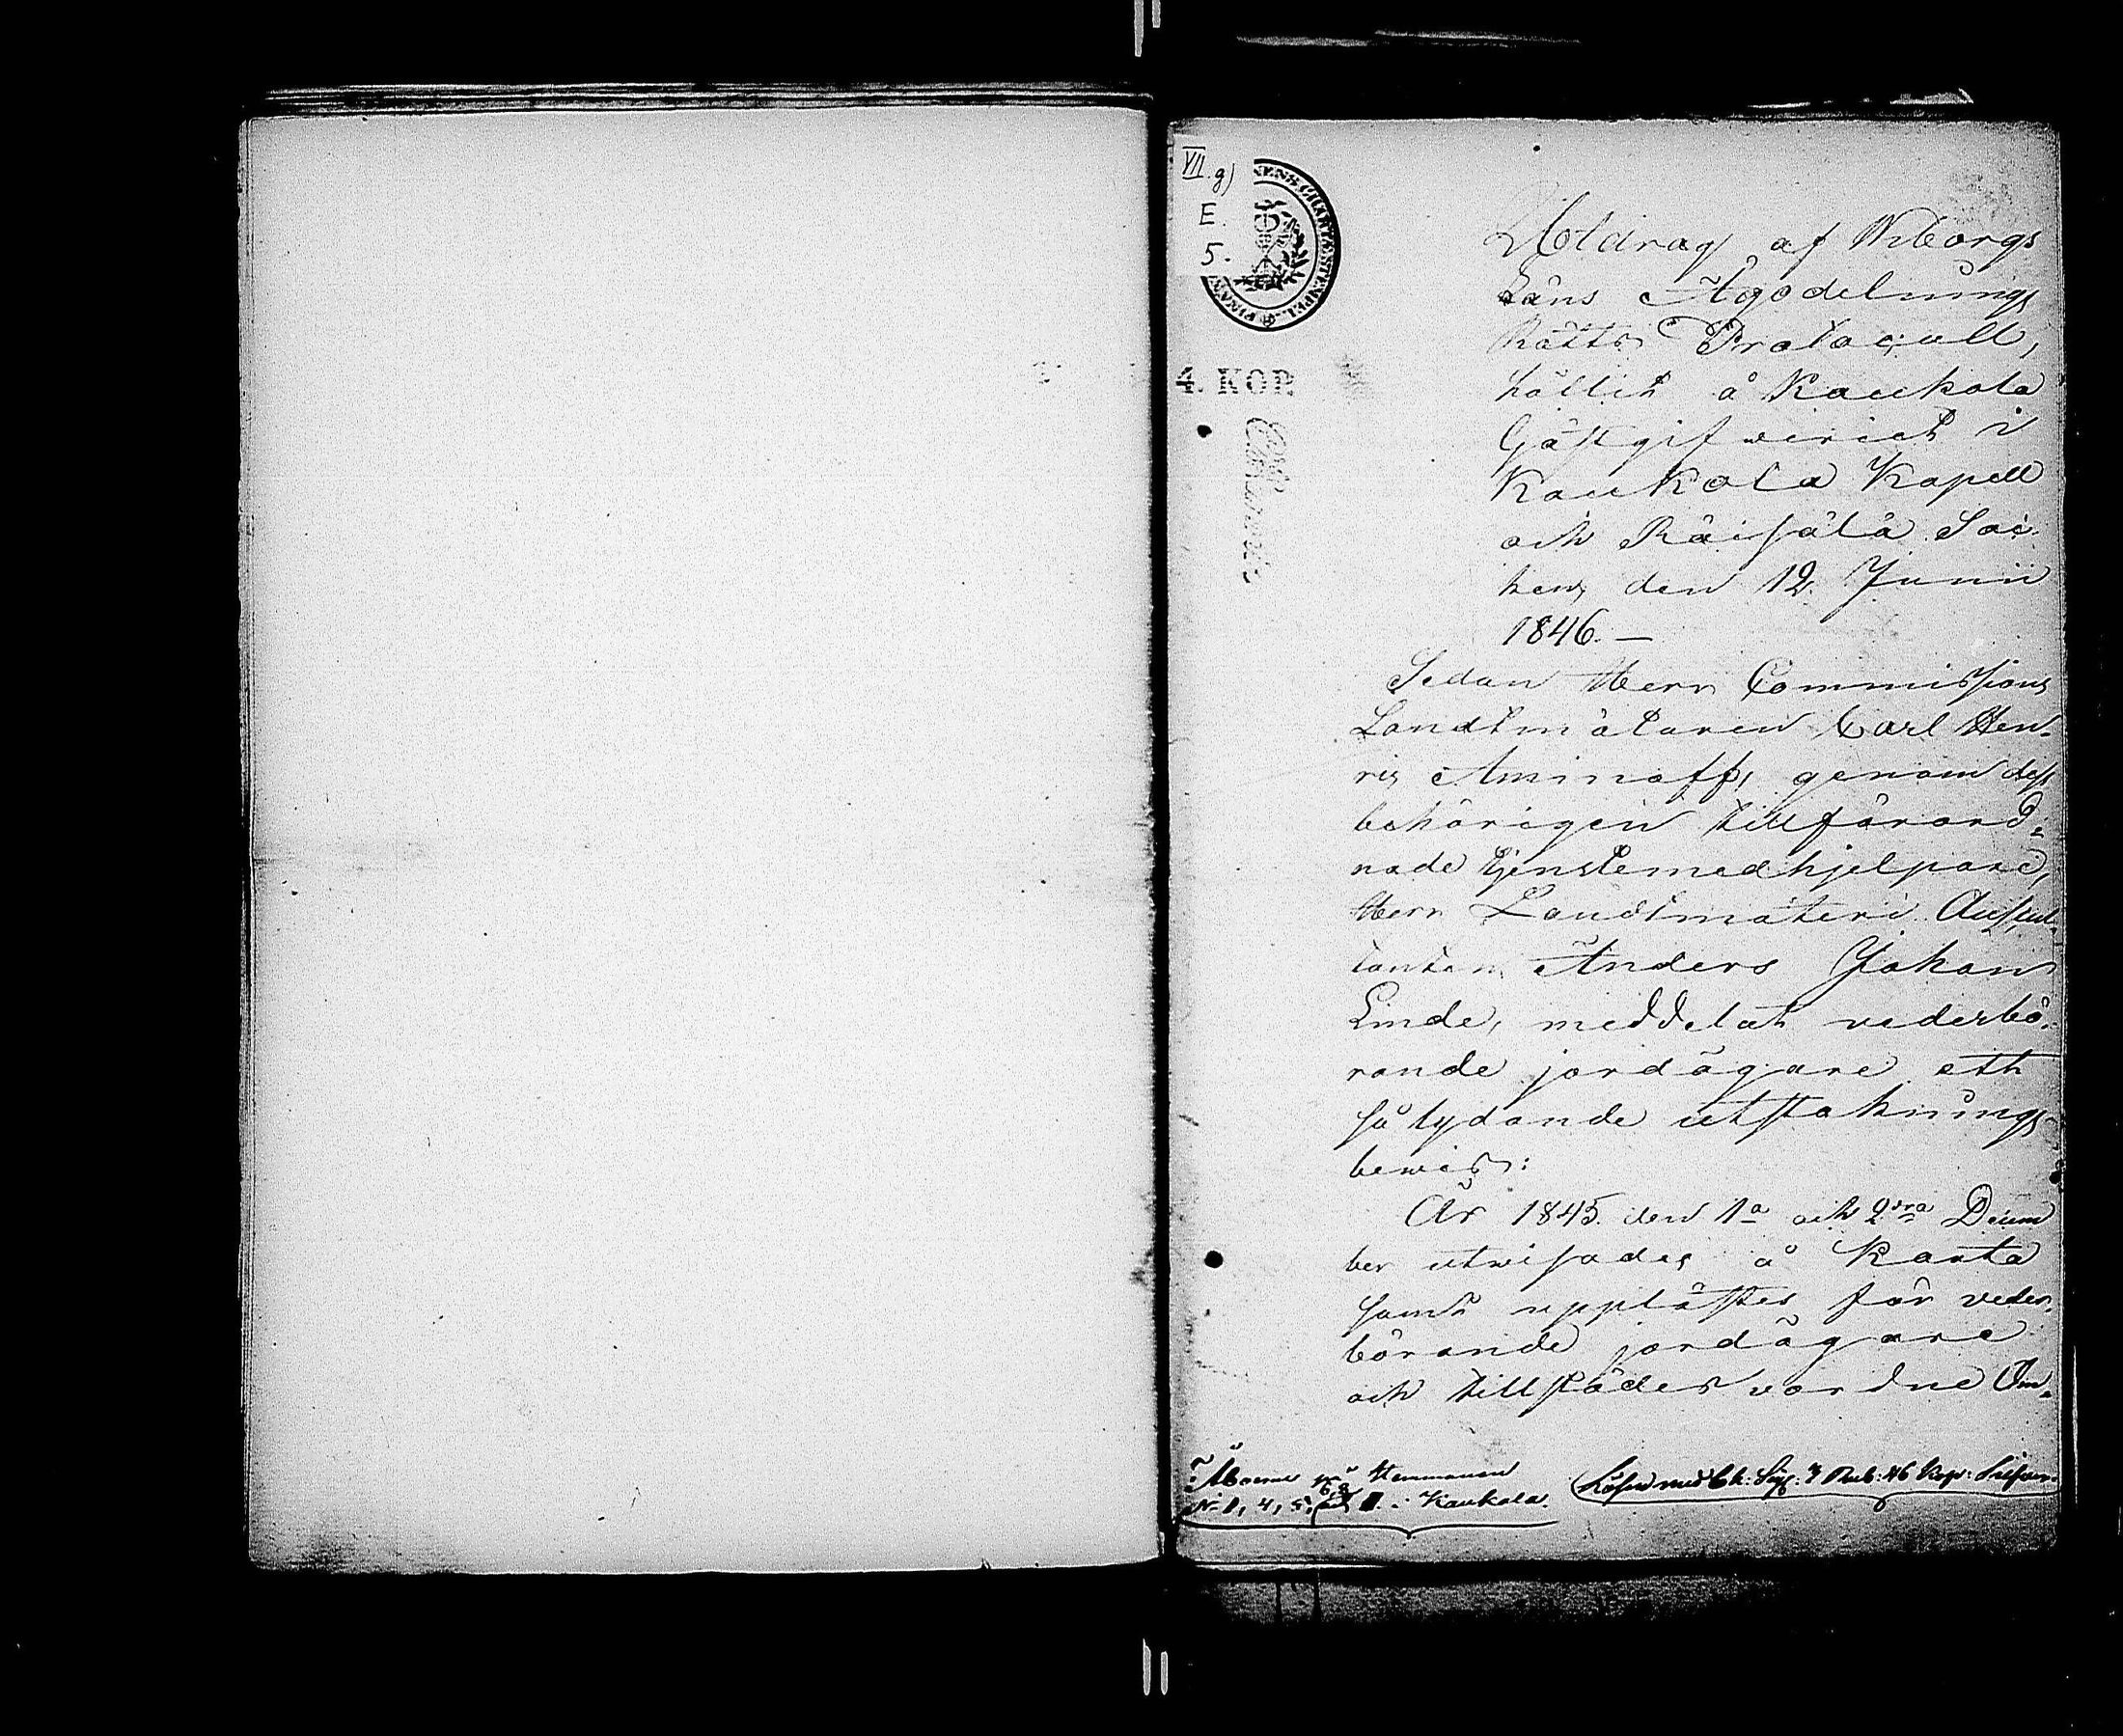 VII. g)
E.
5.
4. KOP.
Utdrag af Wiborgs
Läns Ägodelnings
Rätts Protocoll,
hållit å Kaukola
Gästgifweriet i
Kaukola Kapell
och Räisälä Soc-
ken, den 12 Junii
1846. —
Sedan Herr Commissions
Landtmätaren Carl Hen-
ric Aminoff, genom dess
behörigen tillförord-
nade tjenstemedhjelpare,
Herr Landtmäteri Auscul-
tanten Anders Johan
Linde, meddelat vederbö-
rande jordägare ett
så lydande utstaknings
bewis:
År 1845 den 1a och 2dra Decem
ber utwisades å Karta
samt upplästes för veder-
börande jordägare
och tillstädes vordne Om-
Åboerne på Hemmanen
No 1, 4, 5, 6, 8 Kaukola.
Lösen med Ch: Sig: 7 Rub: 46 Kop: Silfver.